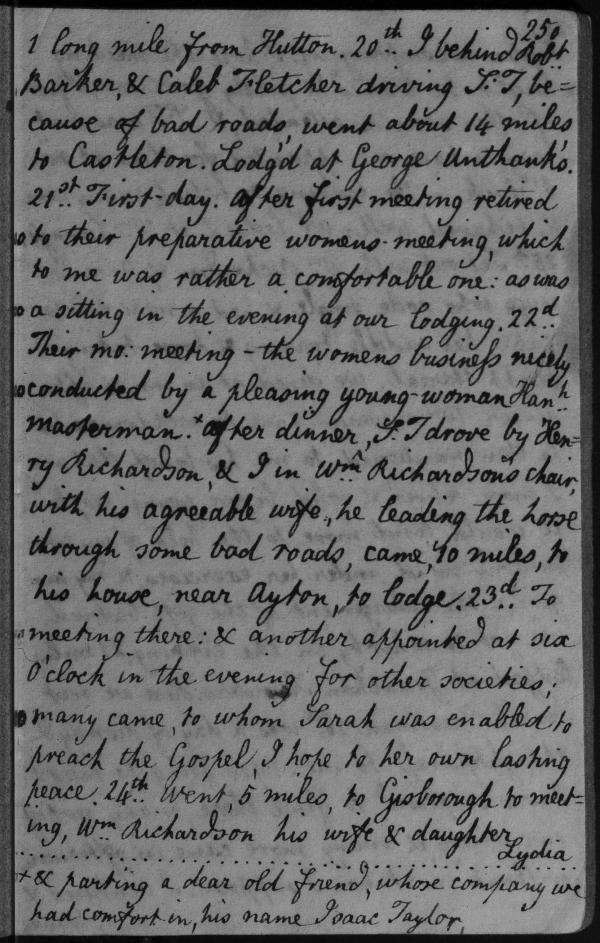 250
1 long mile from Hutton. 20th I behind Robt
Barker, & Caleb Fletcher driving S:T, be=
cause of bad roads, went about 14 miles
to Castleton. Lodg'd at George Unthank's.
21st First-day. After first meeting retired
to their preparative womens-meeting, which
to me was rather a comfortable one: as was
a sitting in the evening at our lodging. 22d
Their mo: meeting - the womens business nicely
conducted by a pleasing young-woman Hanh
Masterman.+ After dinner, S:T drove by Hen=
ry Richardson, & I in Wm Richardson's chair,
with his agreeable wife, he leading the horse
through some bad roads, came, 10 miles, to
his house, near Ayton, to lodge. 23d To
meeting there: & another appointed at six
O'clock in the evening for other societies;
many came, to whom Sarah was enabled to
preach the Gospel, I hope to her own lasting
peace. 24th Went, 5 miles, to Gisborough to meet=
ing, Wm Richardson his wife & daughter
Lydia
+ & parting a dear old friend, whose company we
had comfort in, his name Isaac Taylor,